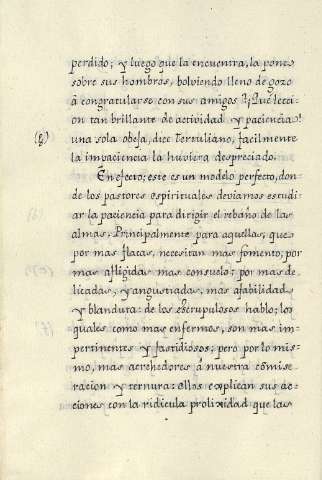 perdido; y luego que la encuentra, la pone
sobre sus hombros, bolviendo lleno de gozo
á congratularse con sus amigos? ¡Qué lecci-
on tan brillante de actividad y paciencia!
una sola obeja, dice Tertuliano, facilmente
la impaciencia la huviera despreciado.
En efecto; este es un modelo perfecto, don-
de los pastores espirituales deviamos estudi-
ar la paciencia para dirigir el rebaño de las
almas. Principalmente para aquellas, que
por mas flacas, necesitan mas fomento; por
mas afligidas mas consuelo; por mas de-
licadas, y angustiadas, mas afabilidad
y blandura: de los escrupulosos hablo; los
quales como mas enfermos, son mas im-
pertinentes y fastidiosos; pero por lo mis-
mo, mas acrehedores á nuestra comise-
racion y ternura: ellos explican sus ac-
ciones con la ridicula prolixidad que las